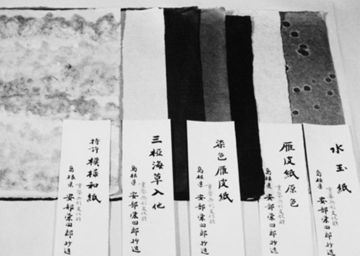 水玉紙
島根県 安部榮四郎抄造
雁皮紙原色
島根県 安部榮四郎抄造
染色雁皮紙
島根県 安部榮四郎抄造
三椏海草入他
島根県 安部榮四郎抄造
特許模様和紙
島根県 安部榮四郎抄造